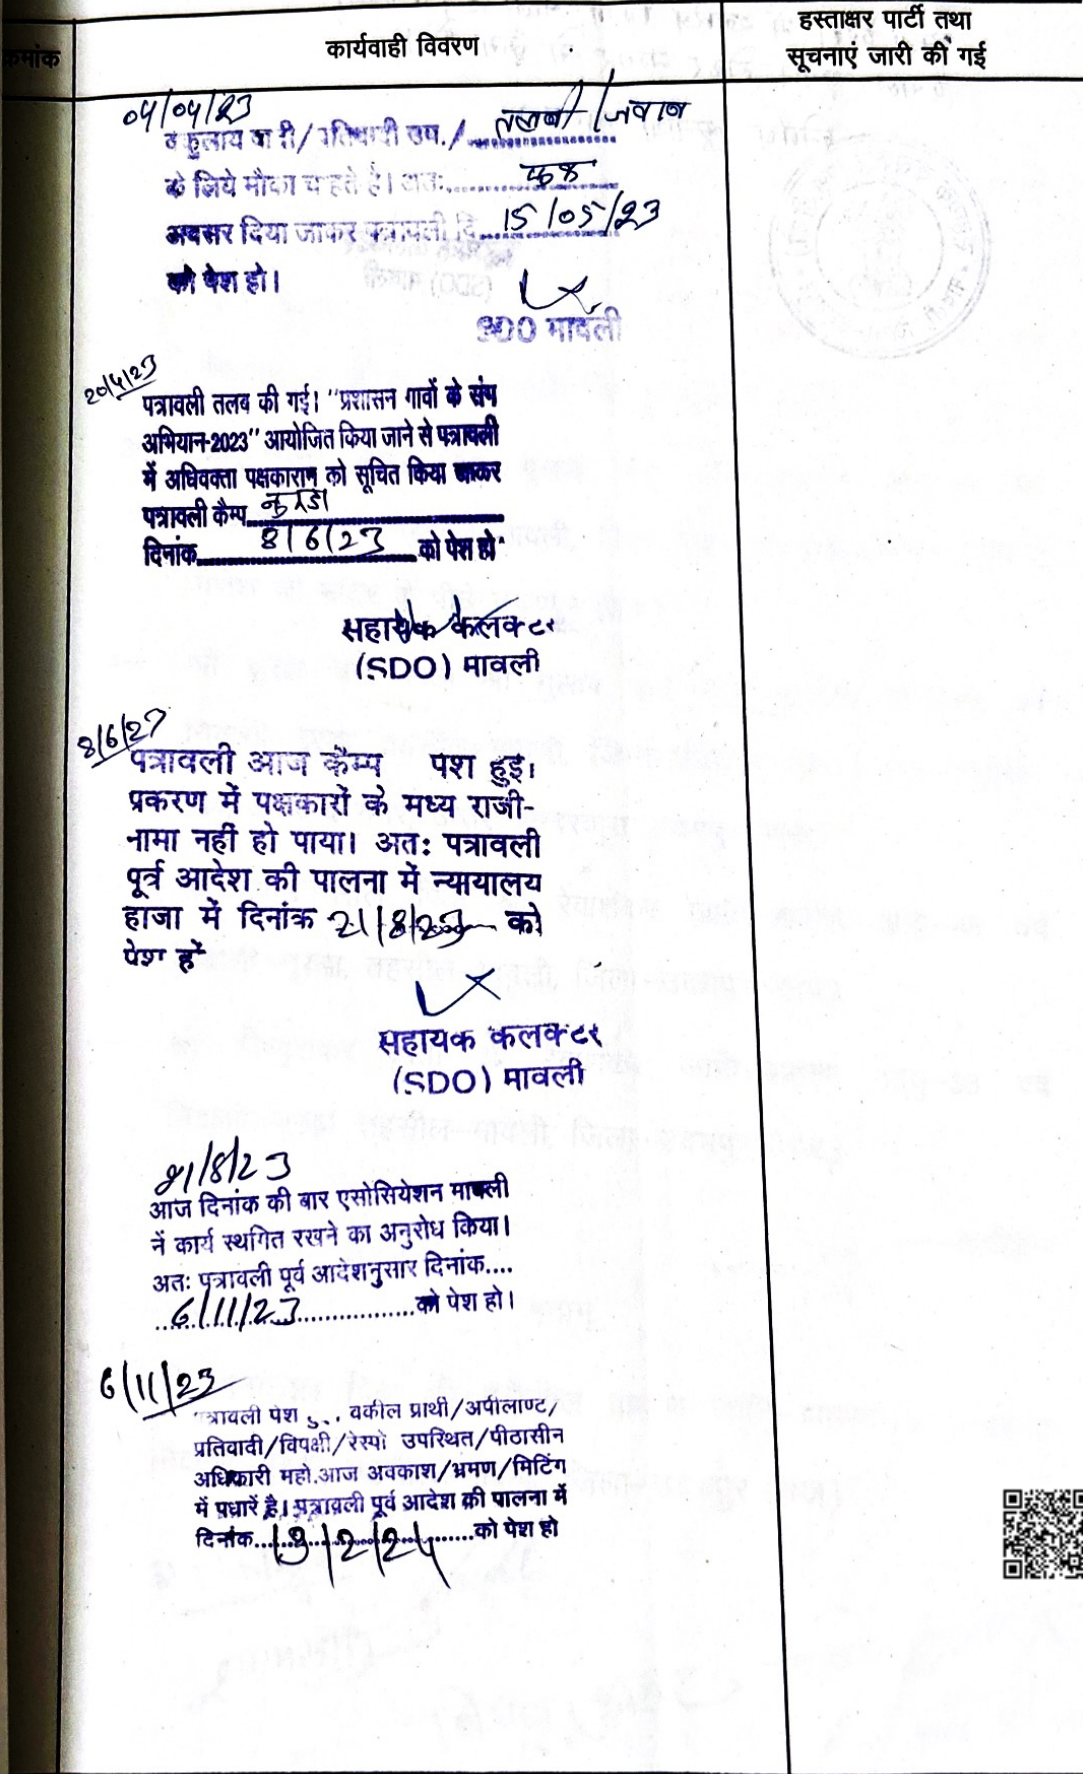 क्रमांक
कार्यवाही विवरण
हस्ताक्षर पार्टी तथा
सूचनाएं जारी की गई
04/04/23
वकुलाय वादी/प्रतिवादी उप./ तलबी/जवाब
के लिये मौका चाहते है। अतः
अवसर दिया जाकर पत्रावली दि 15/05/23
को पेश हो।
SDO मावली
20/4/23
पत्रावली तलब की गई। "प्रशासन गावों के संग
अभियान-2023" आयोजित किया जाने से पत्रावली
में अधिवक्ता पक्षकारान को सूचित किया जाकर
पत्रावली कैम्प
दिनांक 8/6/23 को पेश हो
सहायक कलक्टर
(SDO) मावली
8/6/23
पत्रावली आज कैम्प पेश हुई।
प्रकरण में पक्षकारों के मध्य राजी-
नामा नहीं हो पाया। अतः पत्रावली
पूर्व आदेश की पालना में न्यायालय
हाजा में दिनांक 21/8/23 को
पेश हो
सहायक कलक्टर
(SDO) मावली
21/8/23
आज दिनांक की बार एसोसियेशन मावली
नें कार्य स्थगित रखने का अनुरोध किया।
अतः पत्रावली पूर्व आदेशनुसार दिनांक....
6/11/23 को पेश हो।
6/11/23
पत्रावली पेश वकील प्रार्थी/अपीलाण्ट/
प्रतिवादी/विपक्षी/रेस्पो उपस्थित/पीठासीन
अधिकारी महो.आज अवकाश/भ्रमण/मिटिंग
में पधारें है। पत्रावली पूर्व आदेश की पालना में
दिनांक 13/2/24 को पेश हो